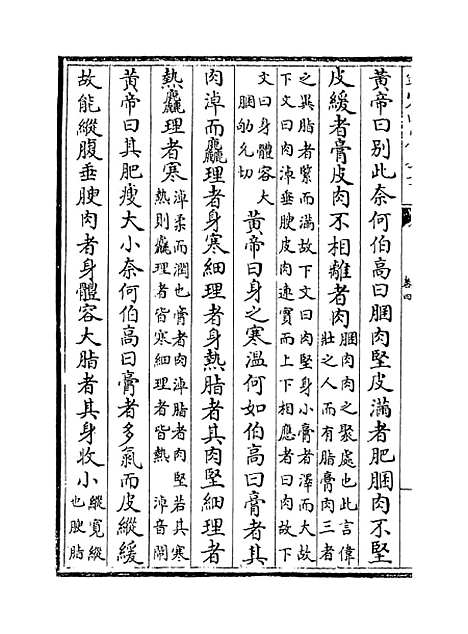 黄帝曰別此奈何伯高曰膕肉堅皮滿者肥膕肉不堅
皮緩者膏皮肉不相離者肉
膕肉肉之聚處也此言偉
壯之人而有脂膏肉三者
之異脂者緊而滿故下文曰肉堅身小膏者澤而大故
下文曰肉淖垂腴皮肉連實而上下相應者曰肉故下
文曰身體容大
膕劬允切
黄帝曰身之寒溫何如伯高曰膏者其
肉淖而麤理者身寒細理者身熱脂者其肉堅細理者
熱麤理者寒
淖柔而潤也膏者肉淖脂者肉堅若其寒
熱則麤理者皆寒細理者皆熱 淖音鬧
黄帝曰其肥瘦大小奈何伯高曰膏者多氣而皮縱緩
故能縱腹垂腴肉者身體容大脂者其身收小
縱寛縱
也腴脂
卷四